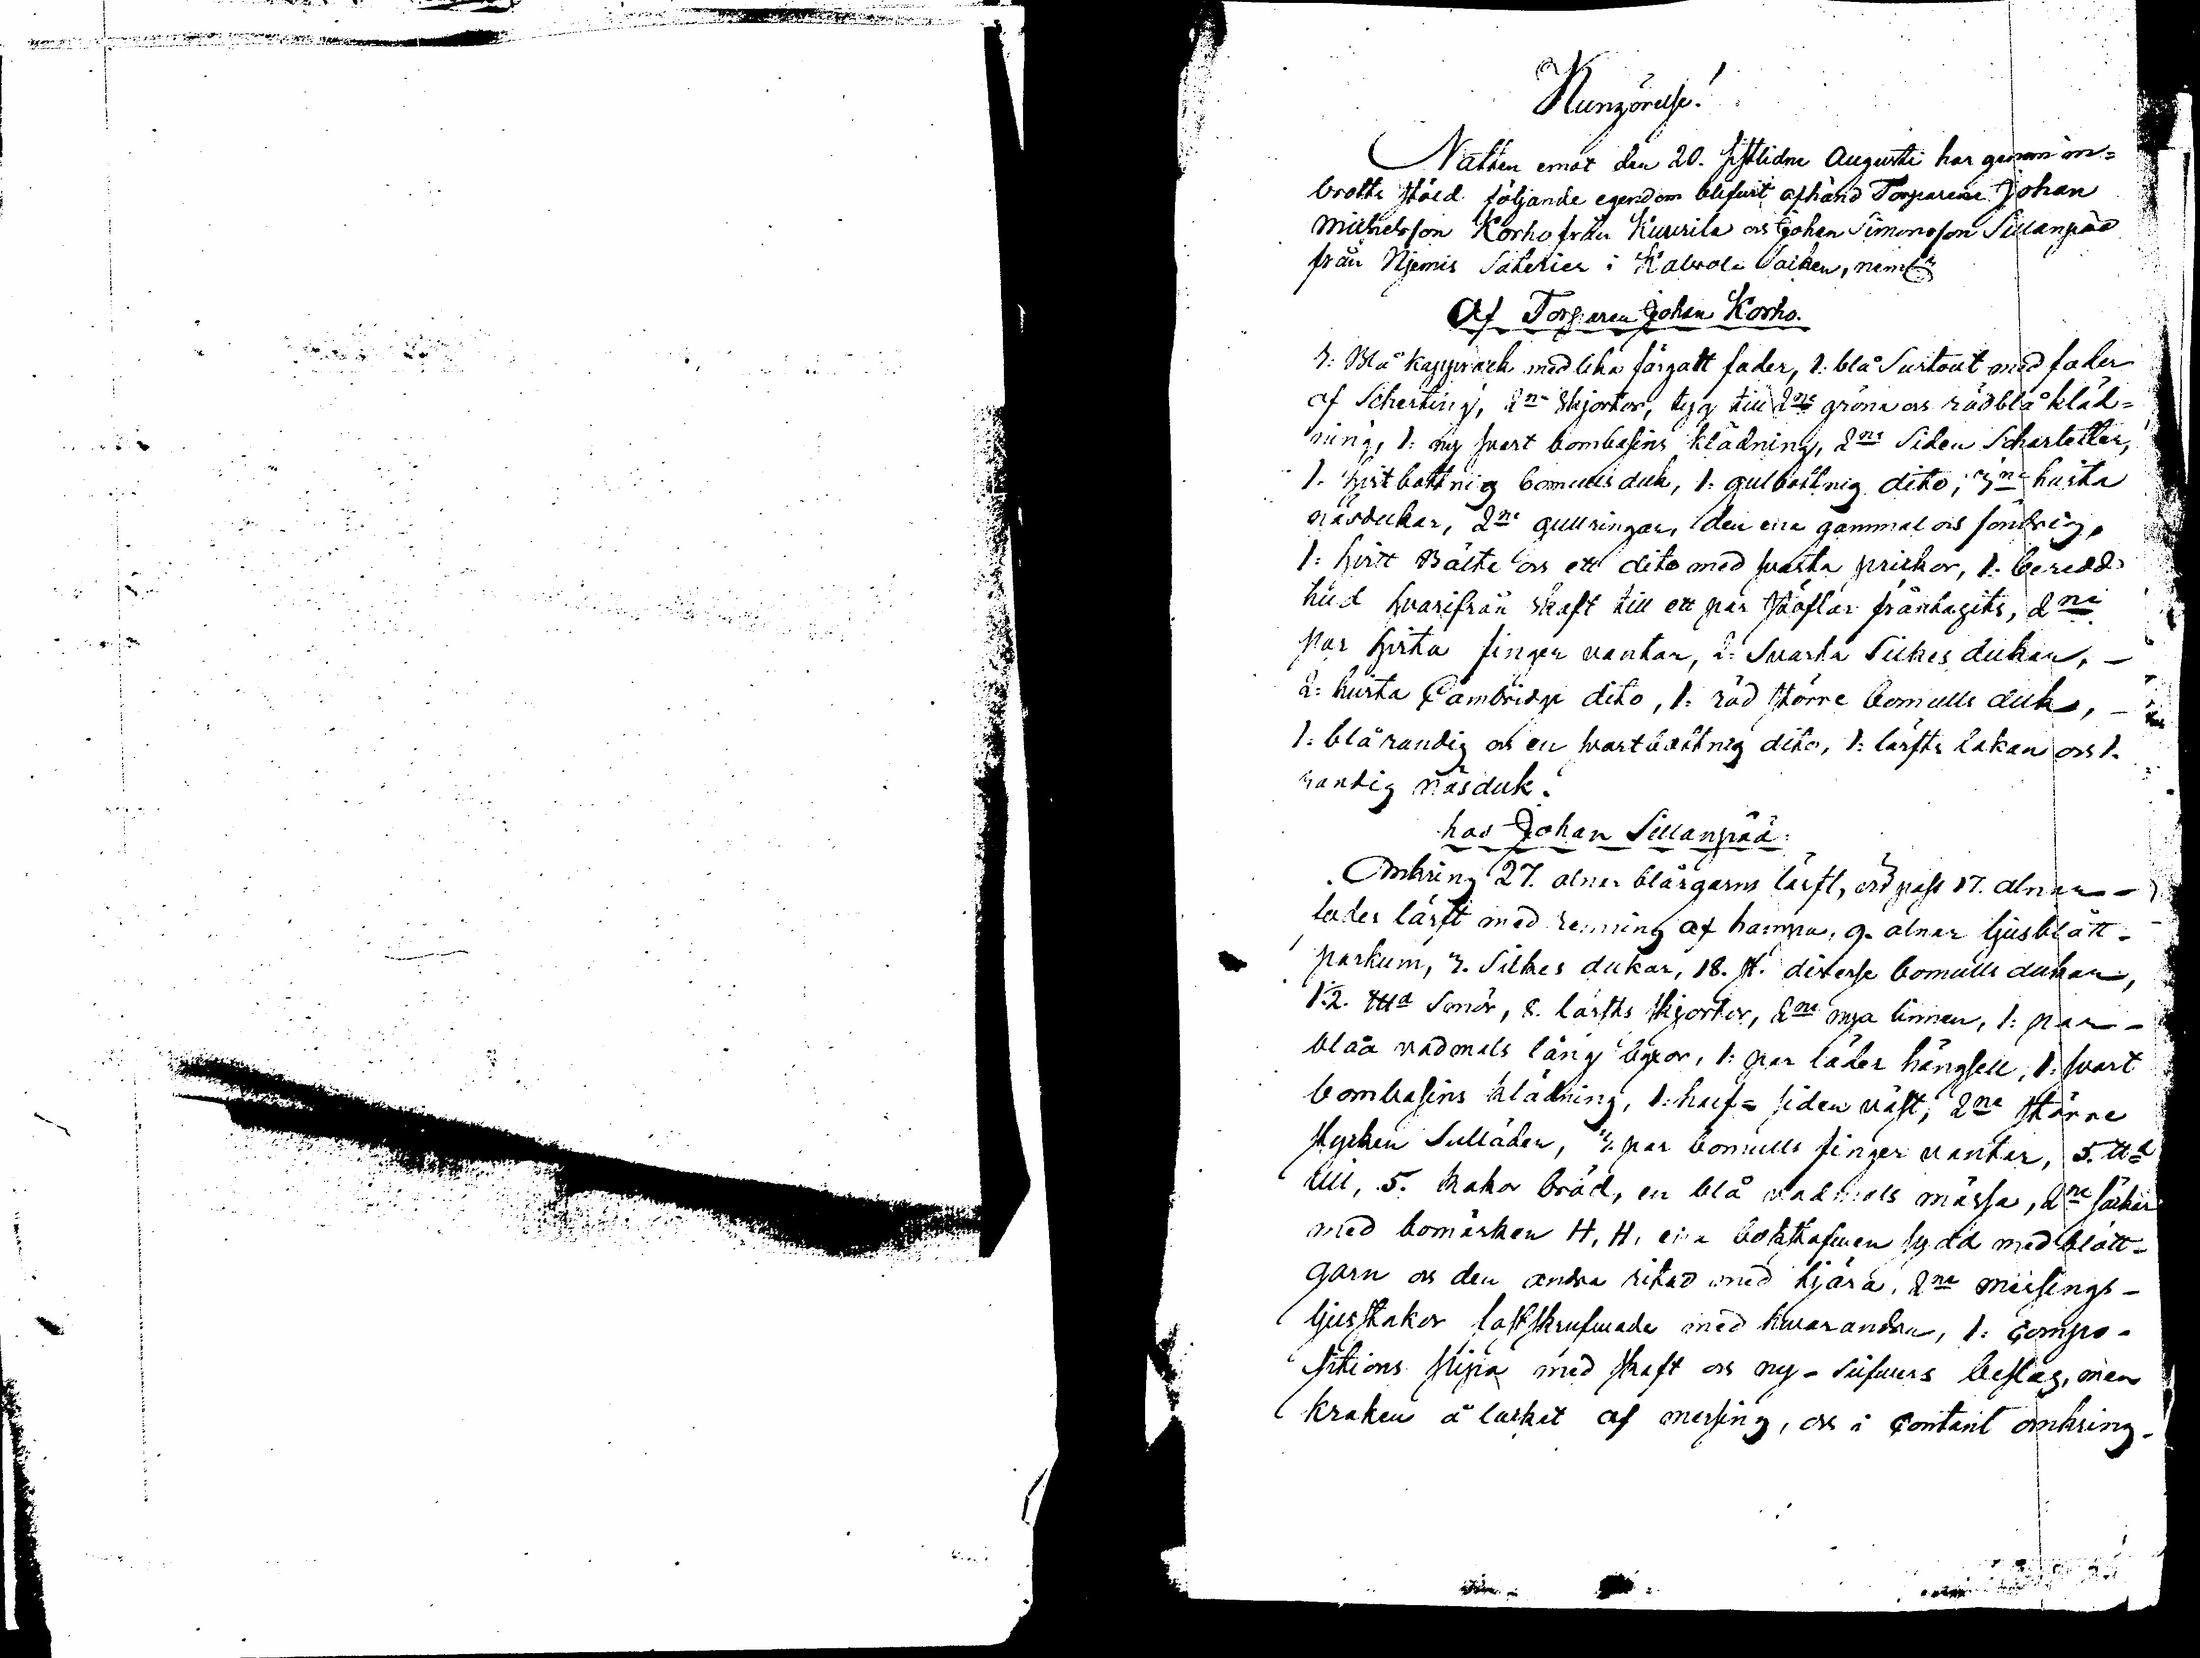 Kungörelse!
Natten emot den 20. sistlidne Augusti har genom in=
brotts stöld följande egendom blifvit afhänd Torparene Johan
Michelsson Korho från Kuurila och Johan Simonsson Sillanpää
från Niemis Säterier i Kalvola Socken, neml:n
Af Torparen Johan Korho.
1: Blå Kapprock med lika färgatt foder, 1. blå Surtout med foder
af Scherting, 2ne Skjortor, tyg till 2ne gröna och rödblå kläd=
ning, 1: ny svart bombasins klädning, 2ne Siden Scharletter,
1. hvitbottnig bomullsduk, 1. gulbottnig dito, 3ne hvita
näsdukar, 2ne gullringar, den ena gammal och söndrig,
1: hvitt Bälte och ett dito med svarta prickor, 1: beredd
hud hvarifrån skaft till ett par stöflar fråntagits, 2ne
par hvita finger vantar, 2: Svarta Silkes dukar, –
2: hvita Cambridge dito, 1: röd större bomulls duk, –
1: blårandig och en svartbottnig dito, 1: lärfts lakan och 1.
randig näsduk.
hos Johan Sillanpää:
Omkring 27. alnar blårgarns lärft, 17. alnar –
foder lärft med renning af hampa, 9. alnar ljusblått –
parkum, 3. Silkes dukar, 18. st. diverse bomulls dukar,
12. ttd Smör, 8. lärfts skjortor, 2ne nya linnen, 1: par –
blåa vadmals lång byxor, 1: par läder hängsell, 1: svart
bombasins klädning, 1: half= siden väst, 2ne större
stycken Sulläder, 3. par bomulls finger vantar, 5. ttd
ull, 5. kakor bröd, en blå vadmals mössa, 2ne säckar
med bomärken H, H, ena bokstafven sydd med blått –
garn och den andra ritad med tjära, 2ne messings –
ljusstakor fastskrufvade med hvarandra, 1: Compo –
sitions pipa med skaft och ny – silfvers beslag, men
kroken å locket af messing, och i Contant omkring –